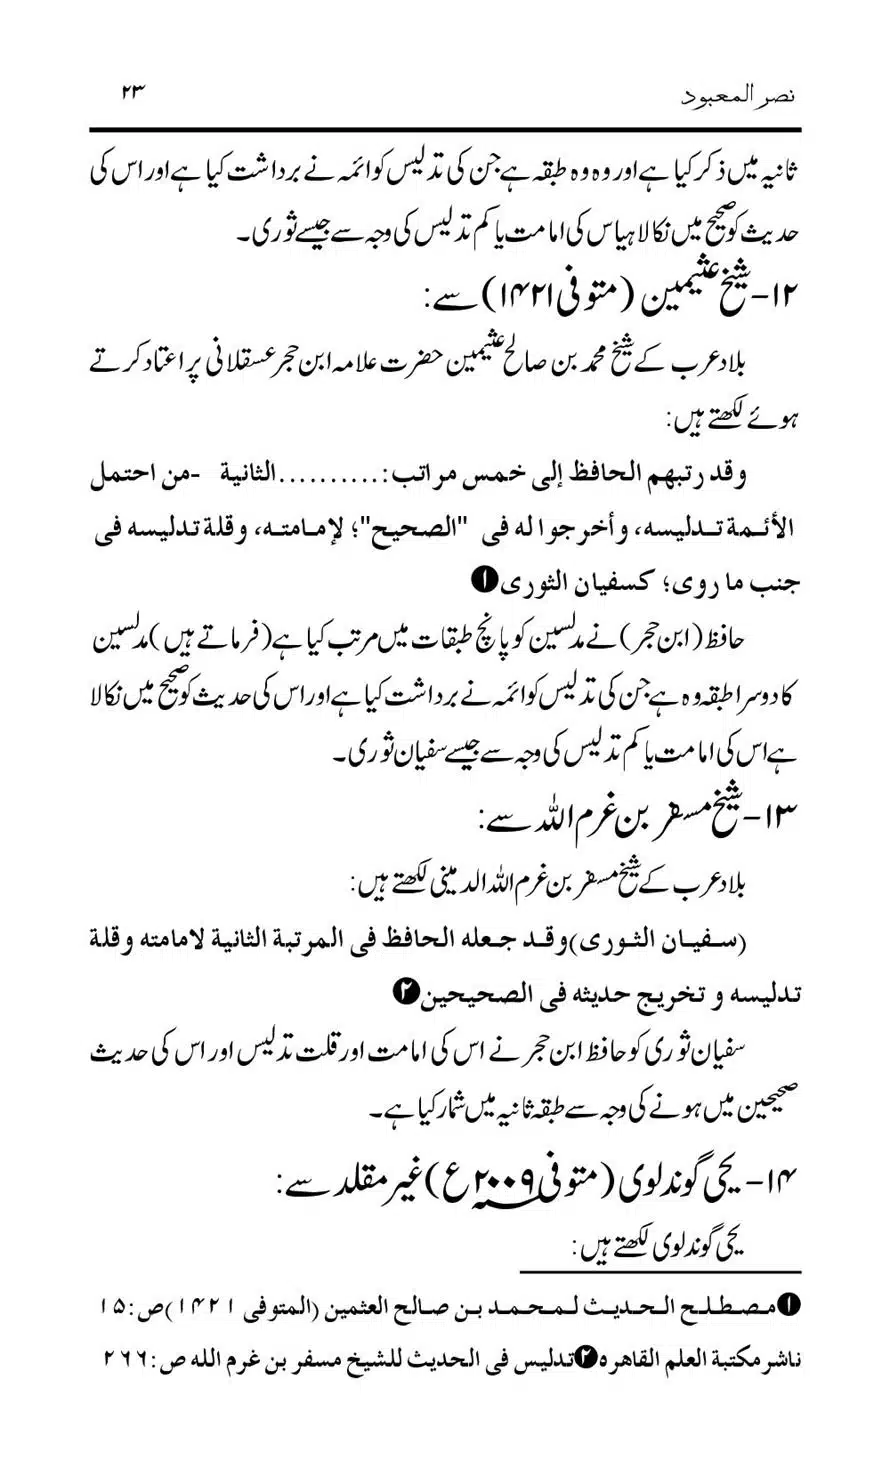 نصر المعبود ۲۳
ثانیہ میں ذکر کیا ہے اور وہ وہ طبقہ ہے جن کی تدلیس کو ائمہ نے برداشت کیا ہے اور اس کی
حدیث کو صحیح میں نکالا ہیا اس کی امامت یا کم تدلیس کی وجہ سے جیسے ثوری۔
۱۲- شیخ عثیمین (متوفی ۱۴۲۱) سے:
بلاد عرب کے شیخ محمد بن صالح عثیمین حضرت علامہ ابن حجر عسقلانی پر اعتماد کرتے
ہوئے لکھتے ہیں:
وقد رتبهم الحافظ إلى خمس مراتب:..........الثانية -من احتمل
الأئـمة تـدليسه، وأخرجوا له فى "الصحيح"؛ لإمـامتـه، وقلة تدليسه فى
جنب ما روى؛ كسفيان الثورى❶
حافظ (ابن حجر) نے مدلسین کو پانچ طبقات میں مرتب کیا ہے (فرماتے ہیں) مدلسین
کا دوسرا طبقہ وہ ہے جن کی تدلیس کو ائمہ نے برداشت کیا ہے اور اس کی حدیث کو صحیح میں نکالا
ہے اس کی امامت یا کم تدلیس کی وجہ سے جیسے سفیان ثوری۔
۱۳- شیخ مسفر بن غرم اللہ سے:
بلاد عرب کے شیخ مسفر بن غرم اللہ الدمینی لکھتے ہیں:
(سـفيـان الثـورى) وقـد جـعله الحافظ فى المرتبة الثانية لامامته وقلة
تدليسه و تخريج حديثه فى الصحيحين❷
سفیان ثوری کو حافظ ابن حجر نے اس کی امامت اور قلت تدلیس اور اس کی حدیث
صحیحین میں ہونے کی وجہ سے طبقہ ثانیہ میں شمار کیا ہے۔
۱۴- یحیی گوندلوی (متوفی ۲۰۰۹ء) غیر مقلد سے:
یحیی گوندلوی لکھتے ہیں:
❶مـصـطـلـح الـحـديـث لـمـحـمـد بـن صـالح العثمين (المتوفى ۱۴۲۱) ص:۱۵
ناشر مكتبة العلم القاهره❷تدليس فى الحديث للشيخ مسفر بن غرم الله ص:۲۶۶